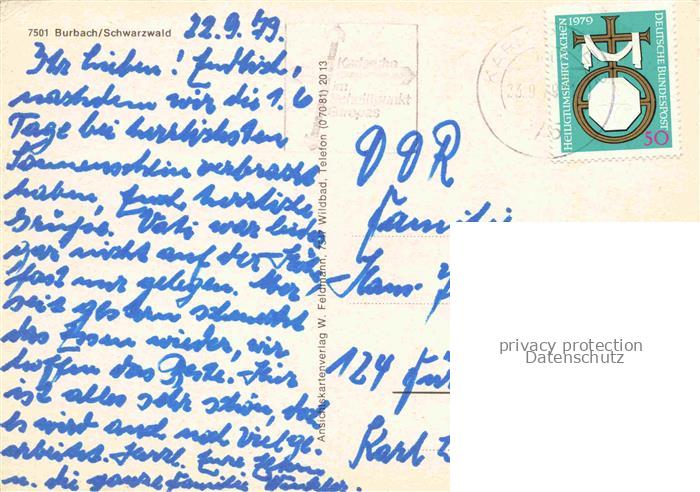 7501 Burbach/Schwarzwald
22.9.79.
Ihr Lieben! Endlich,
nachdem wir die 1. 6
Tage bei herrlichstem
Sonnenschein verbracht
haben, Euch herzliche
Grüße. Vati war leider
gar nicht auf der Höhe
fast nur gelegen. Aber
seit gestern schmeckt
das Essen wieder, wir
hoffen das Beste. Hier
ist alles sehr schön, doch
es wird auch noch viel ge-
arbeitet. Herzl. Eure Eltern
u. die ganze Familie
Ansichtskartenverlag W. Feldmann, 7547 Wildbad, Telefon (0 70 81) 20 13
Karlsruhe
im
Europas
HEILIGTUMSFAHRT AACHEN 1979
DEUTSCHE BUNDESPOST
50
DDR
Familie
Hans-
124
Karl
privacy protection
Datenschutz